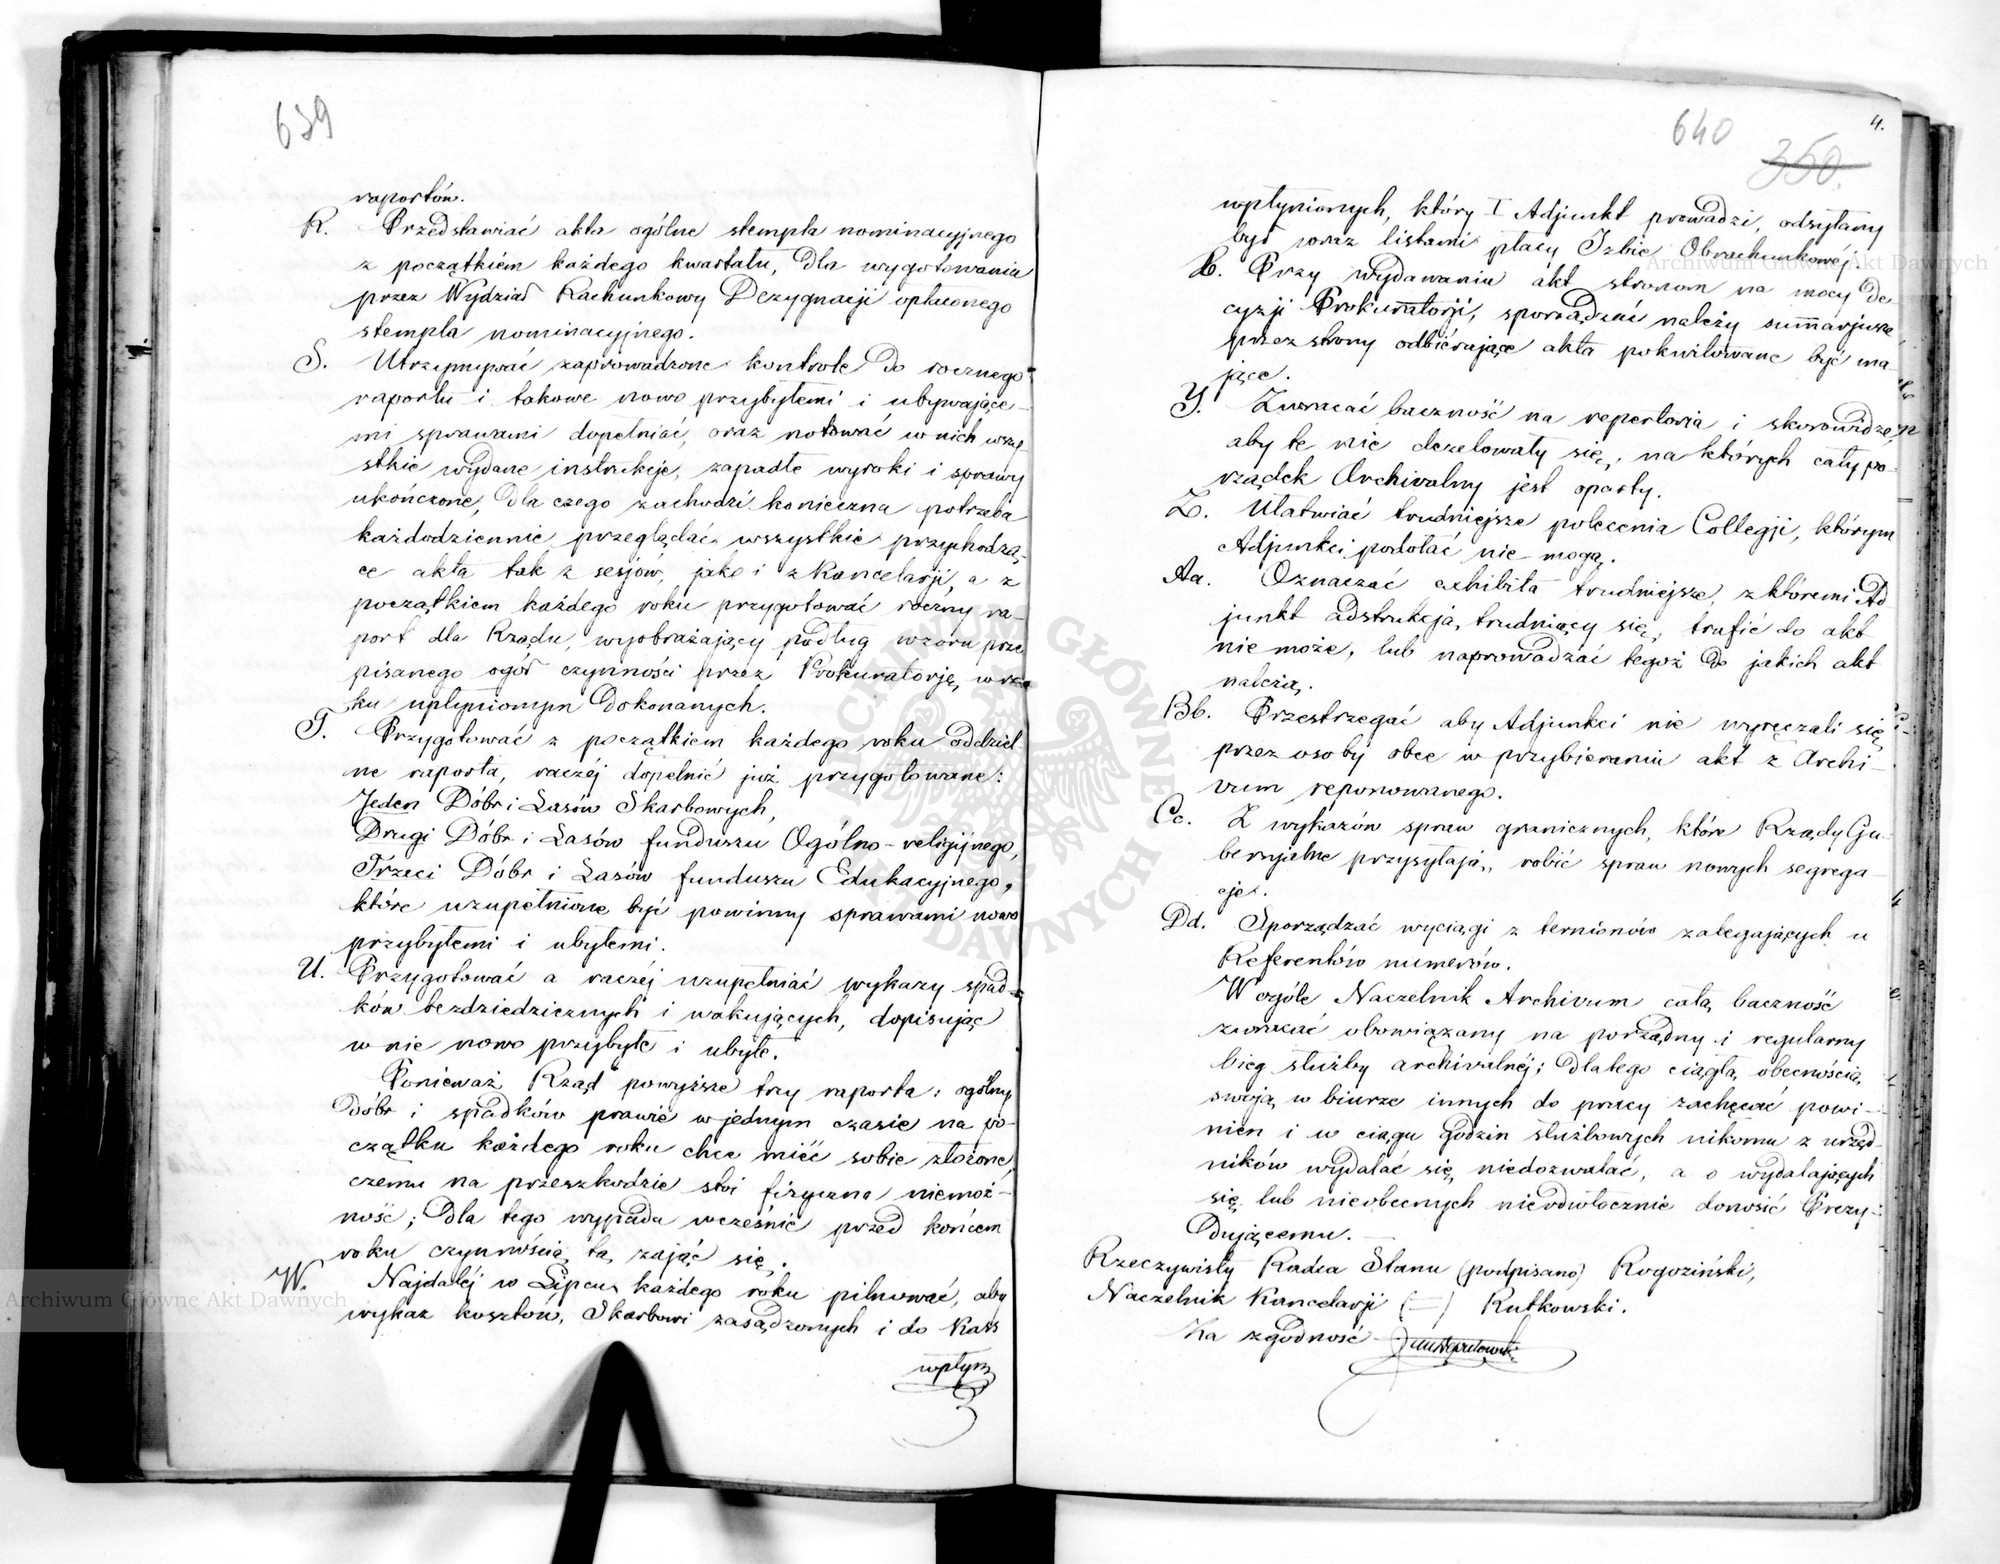 639
raportów.
R. Przedstawiać akta ogólne stempla nominacyjnego
z początkiem każdego kwartału, dla wygotowania
przez Wydział Rachunkowy Dezygnacji opłaconego
stempla nominacyjnego.
S. Utrzymywać zaprowadzone kontrole do rocznego
raportu i takowe nowo przybyłemi i ubywające-
mi sprawami dopełniać, oraz notować w nich wszy-
stkie wydane instrukcje, zapadłe wyroki i sprawy
ukończone, dla czego zachodzi konieczna potrzeba
każdodziennie przeglądać wszystkie przychodzą-
ce akta tak z sesjów, jako i z Kancelarji, a z
początkiem każdego roku przygotować roczny ra-
port dla Rządu, wyobrażający podług wzoru prze
pisanego ogół czynności przez Prokuratorję, w ro-
ku upłynionym dokonanych.
T. Przygotować z początkiem każdego roku oddziel-
ne raporta, raczéj dopełnić już przygotowane:
Jeden Dóbr i Lasów Skarbowych,
Drugi Dóbr i Lasów funduszu Ogólno-religijnego,
Trzeci Dóbr i Lasów funduszu Edukacyjnego,
które uzupełnione być powinny sprawami nowo
przybyłemi i ubyłemi.
U. Przygotować a raczéj uzupełniać wykazy spad-
ków bezdziedzicznych i wakujących, dopisując
w nie nowo przybyłe i ubyłe.
Ponieważ Rząd powyższe trzy raporta: ogólny
Dóbr i spadków prawie w jednym czasie na po-
czątku każdego roku chce mieć sobie złożone,
czemu na przeszkodzie stoi fizyczna niemoż-
ność; dla tego wypada wcześnie przed końcem
roku czynnością tą zająć się.
W. Najdaléj w Lipcu każdego roku pilnować, aby
wykaz kosztów, Skarbowi zasądzonych i do Kass
wpłyn
640
4.
350.
wpłynionych, który I Adjunkt prowadzi, odsyłany
był wraz listami płacy Izbie Obrachunkowéj.
X. Przy wydawaniu akt stronom na mocy de
cyzji Prokuratorji, sporządzać należy summarjusze,
przez strony odbierające akta pokwitowane być ma-
jące.
Y. Zwracać baczność na repertoria i skorowidze,
aby te nie dezelowały się, na których cały po-
rządek Archivalny jest oparty.
Z. Ułatwiać trudniejsze polecenia Collegji, którym
Adjunkci podołać nie mogą.
Aa. Oznaczać exhibita trudniejsze, z któremi Ad
junkt adstrukcją trudniący się, trafić do akt
nie może, lub naprowadzać tegoż do jakich akt
należą.
Bb. Przestrzegać aby Adjunkci nie wyręczali się
przez osoby obce w przybieraniu akt z Archi-
vum reponowanego.
Cc. Z wykazów spraw granicznych, które Rządy Gu-
bernjalne przysyłają, robić spraw nowych segrega-
cje.
Dd. Sporządzać wyciągi z ternionów zalegających u
Referentów numerów.
W ogóle Naczelnik Archivum całą baczność
zwracać obowiązany na porządny i regularny
bieg służby archivalnéj; dlatego ciągłą obecnością
swoją w biurze innych do pracy zachęcać powi-
nien i w ciągu godzin służbowych nikomu z urzęd-
ników wydalać się niedozwalać, a o wydalających
się lub nieobecnych nieodwłocznie donosić Prezy-
dującemu.
Rzeczywisty Radca Stanu (podpisano) Rogoziński,
Naczelnik Kancelarji (—) Rutkowski.
Za zgodność
Archiwum Główne Akt Dawnych
Archiwum Główne Akt Dawnych
ARCHIWUM GŁÓWNE AKT DAWNYCH